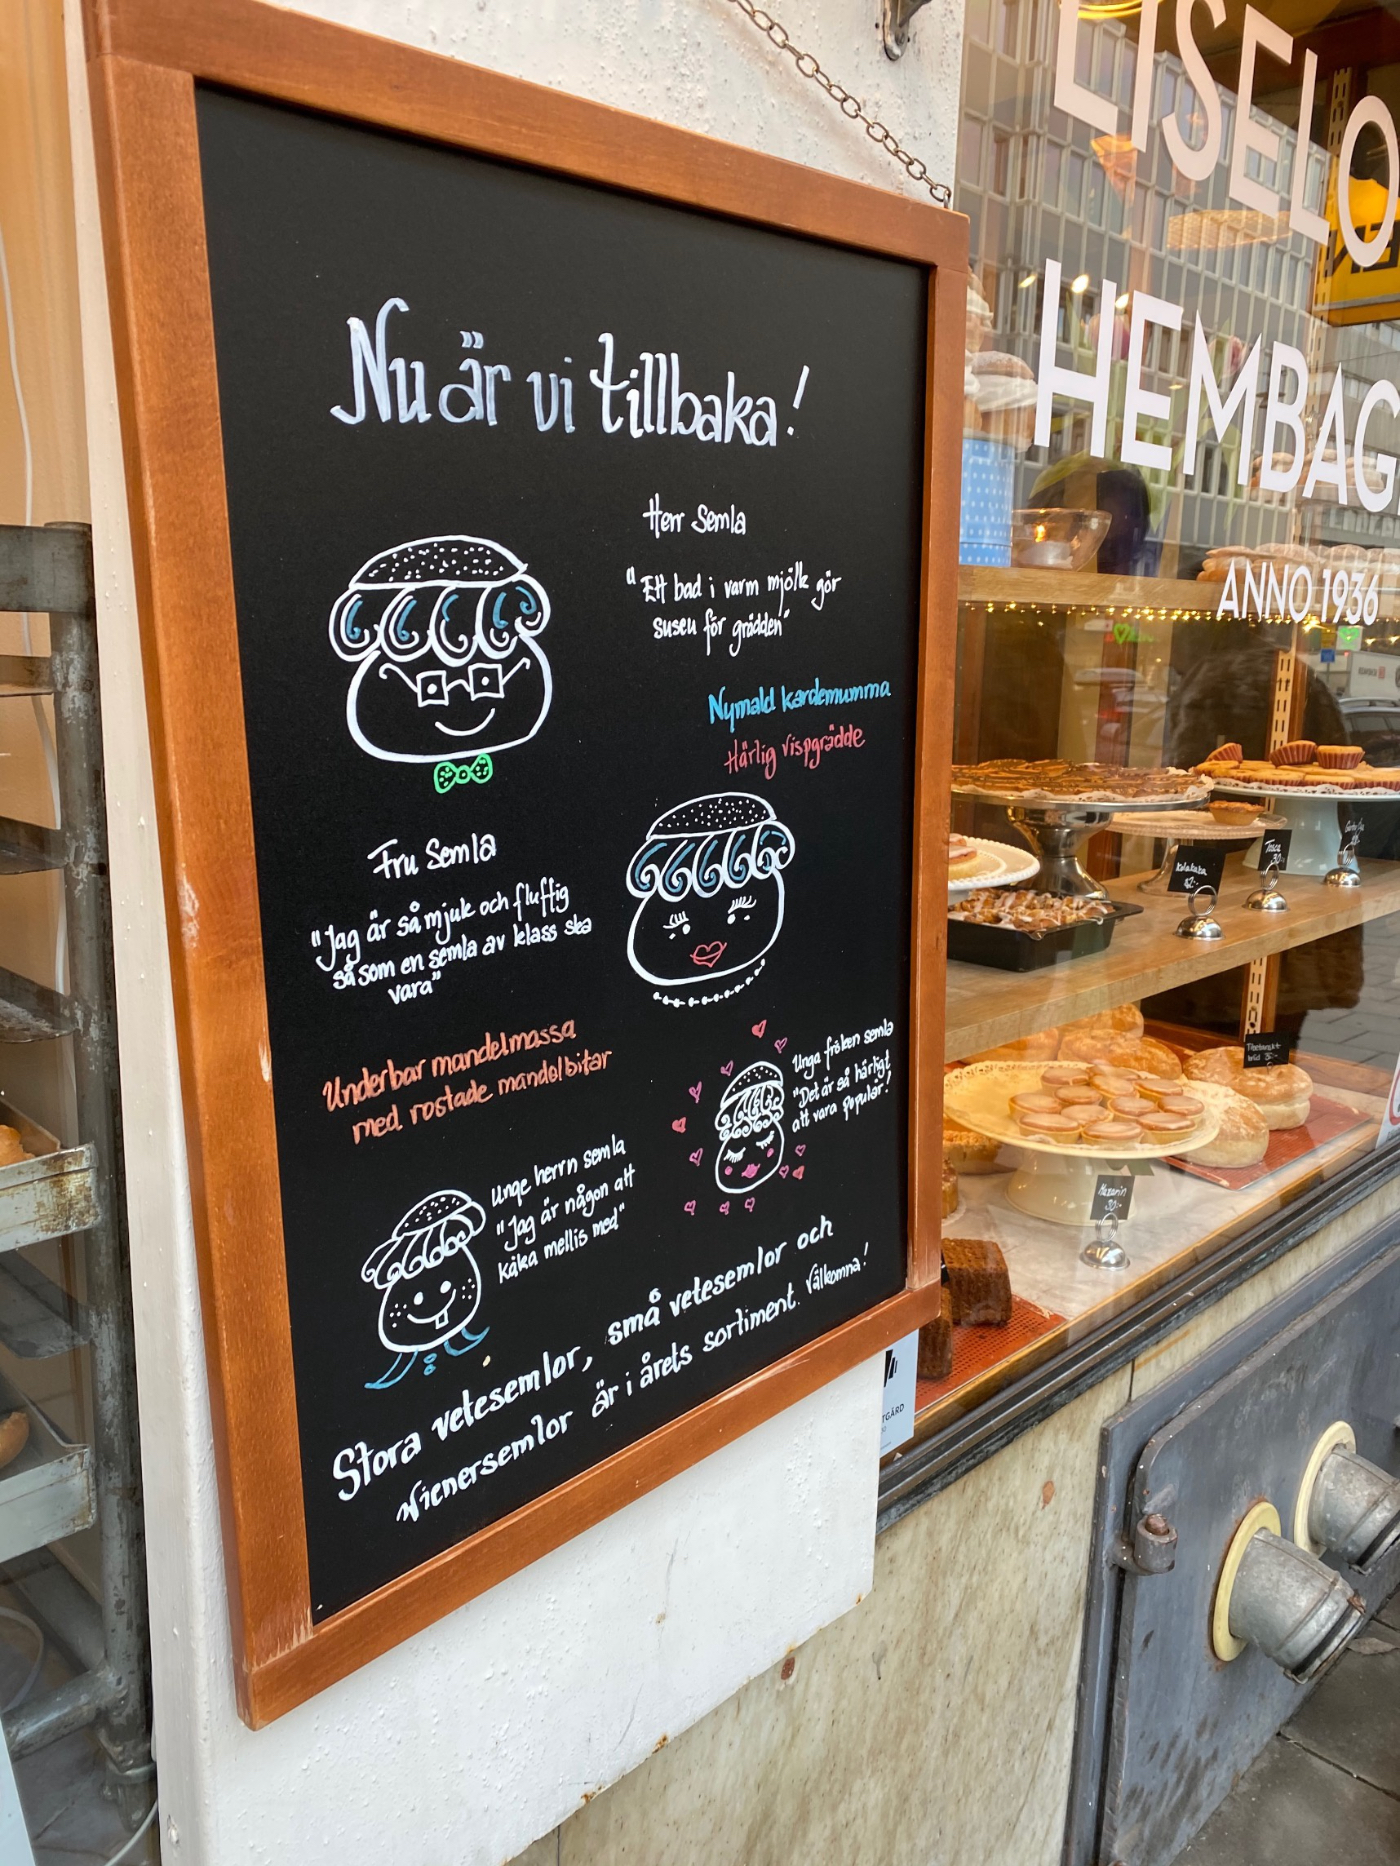 Nu är vi tillbaka!
Herr Semla
"Ett bad i varm mjölk gör
susen för grädden"
Nymald kardemumma
Härlig vispgrädde
Fru Semla
"Jag är så mjuk och fluffig
så som en semla av klass ska
vara"
Underbar mandelmassa
med rostade mandelbitar
Unga fröken semla
"Det är så härligt
att vara populär!
Unge herrn semla
"Jag är någon att
käka mellis med"
Stora vetesemlor, små vetesemlor och
Wienersemlor är i årets sortiment. Välkomna!
LISELO
HEMBAG
ANNO 1936
Kolakaka
42:-
Tosca
30:-
Mazarin
30:-
TGÅRD